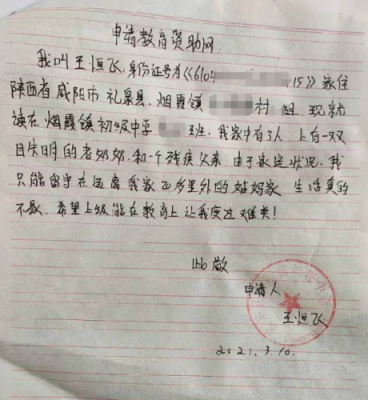 申请教育资助网
我叫王恒飞,身份证号为《610415》家住
陕西省咸阳市礼泉县.烟霞镇村组.现就
读在烟霞镇初级中学班,我家中有3人上有一双
目失明的老奶奶和一个残疾父亲.由于家庭状况,我
只能留宿在远离我家20多里外的姑妈家生活真的
不易.希望上级能在教育上让我度过难关!
此致
申请人
王恒飞
2021.3.10.